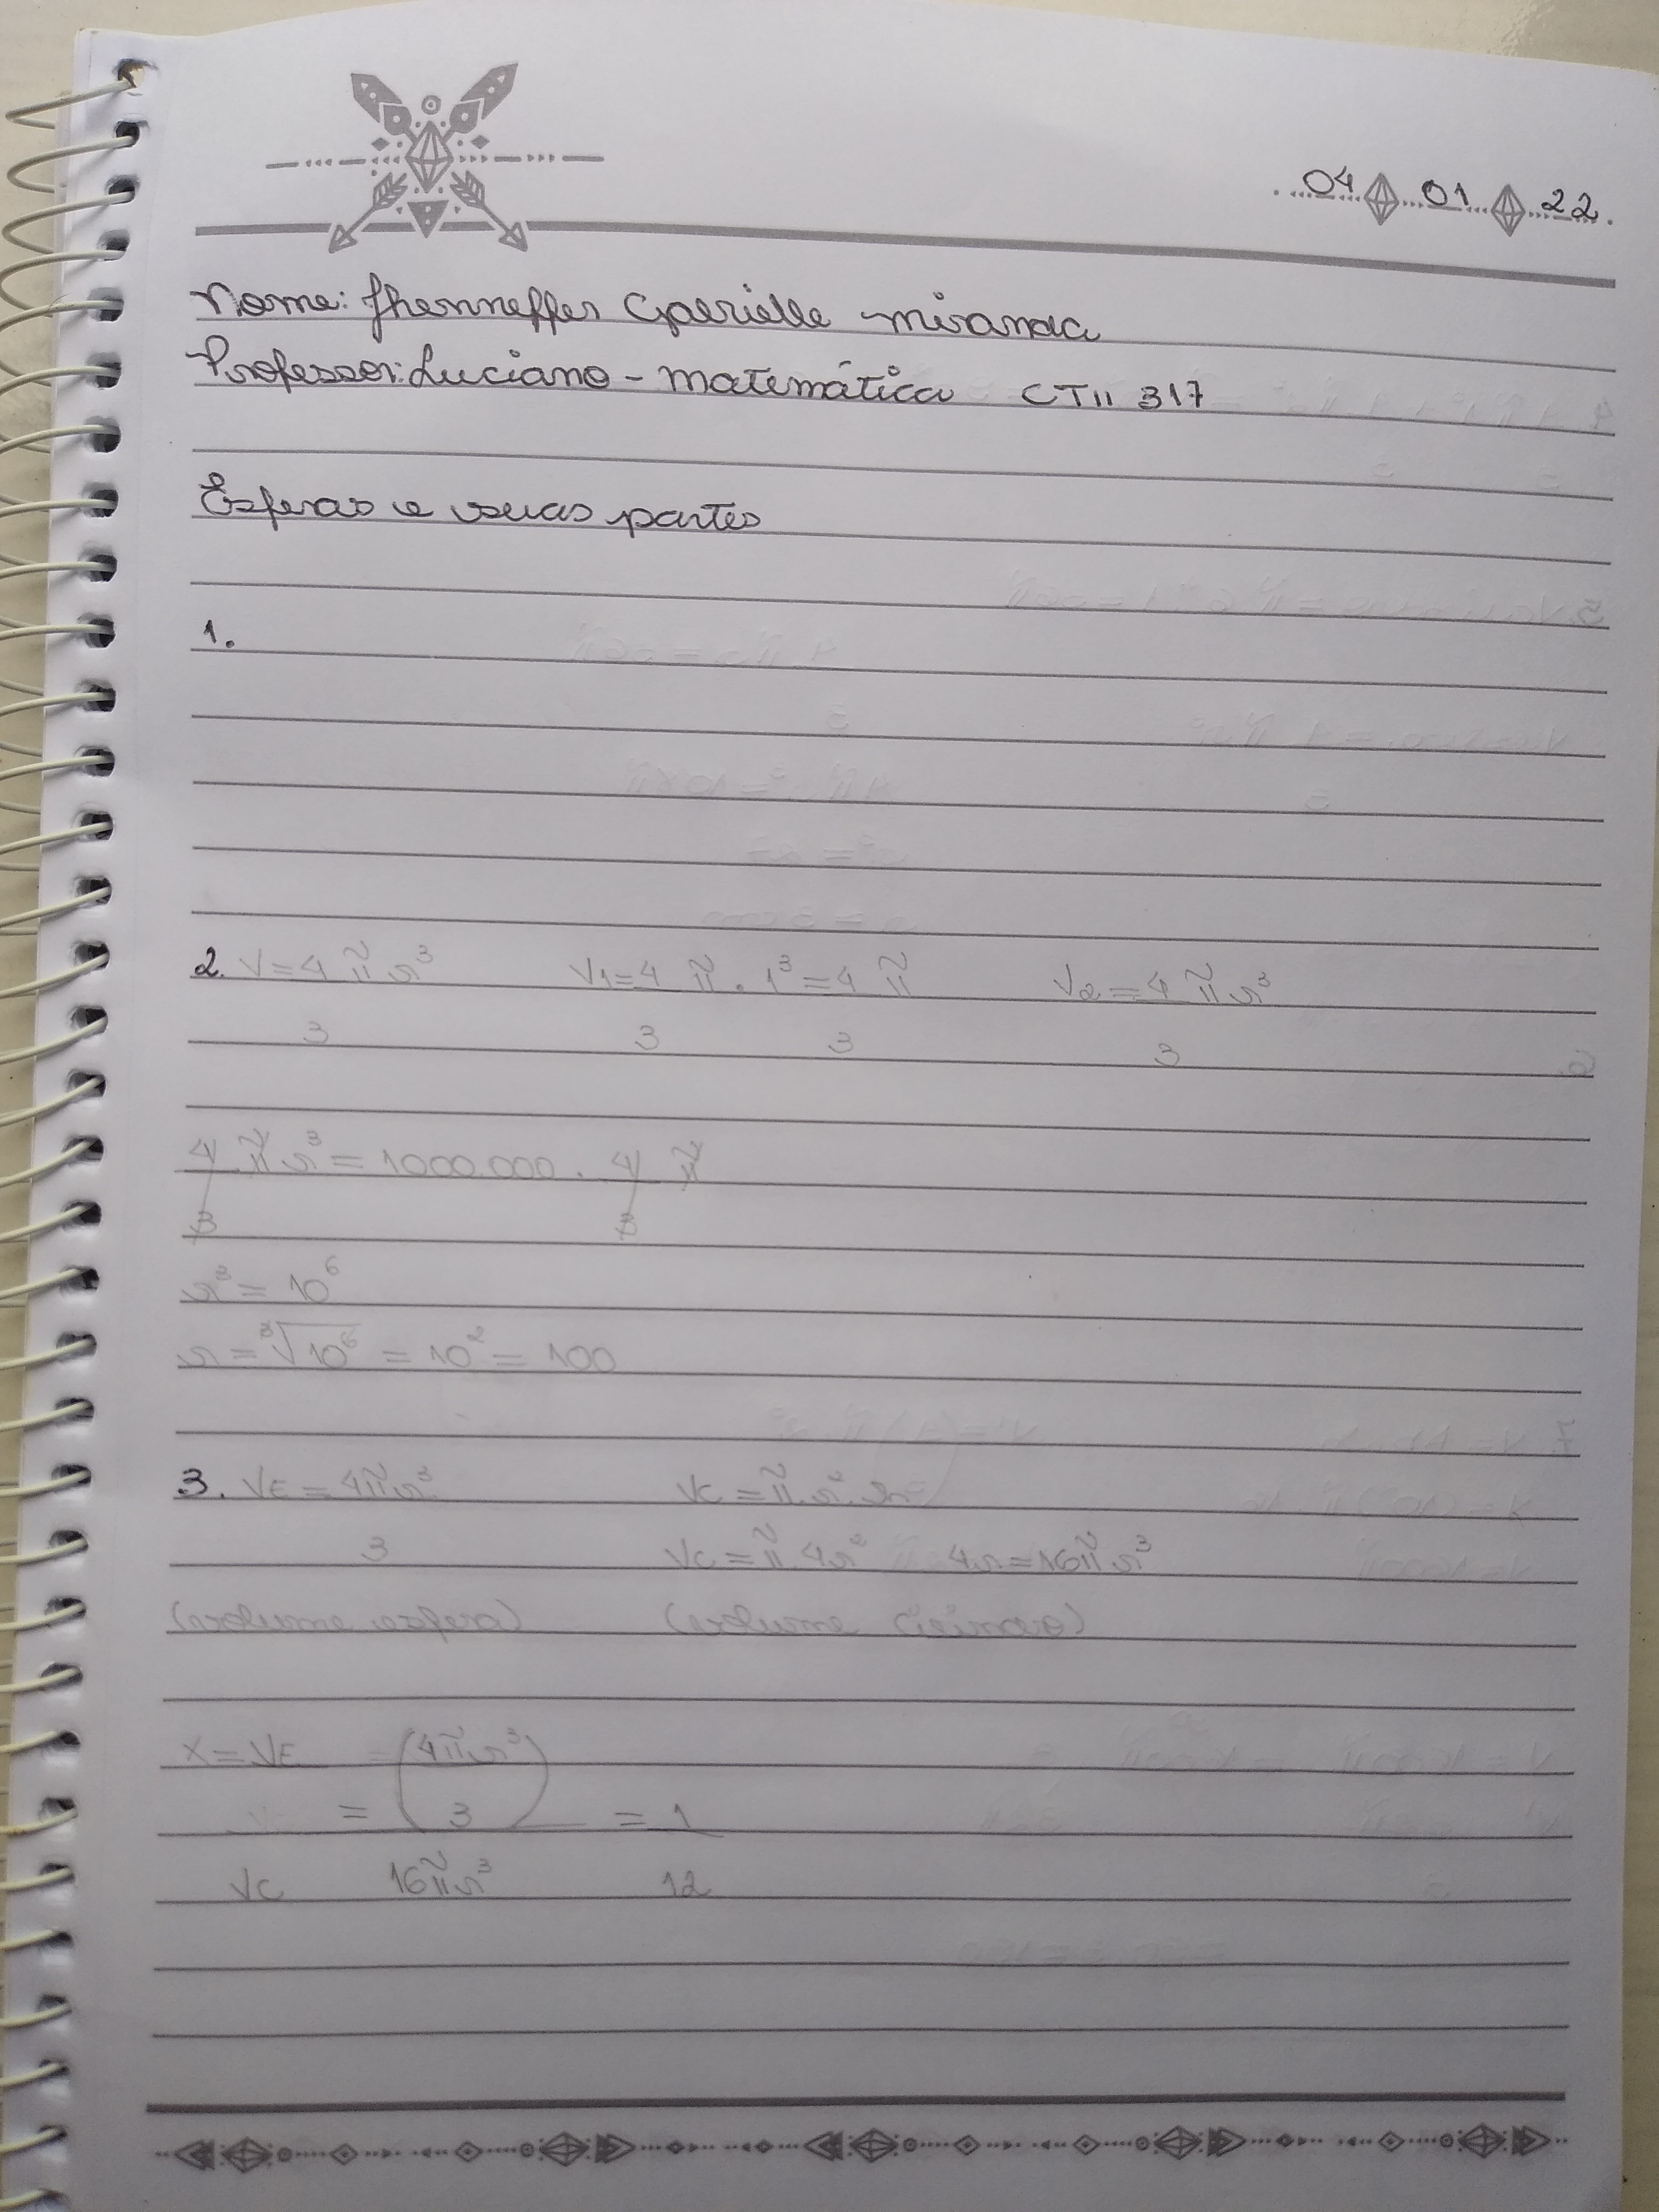 04 01 22
Nome: Jhenneffer Gabrielle Miranda
Professor: Luciano - Matemática CTII 317
Esferas e suas partes
1.
2. V = 4 π r³ V1 = 4 π . 1³ = 4 π V2 = 4 π r³
3 3 3 3
4 π r³ = 1000.000 . 4 π
3 3
r³ = 10⁶
r = ³√10⁶ = 10² = 100
3. VE = 4 π r³ VC = π . r² .
3 VC = π . 4r² 4r = 16 π r³
(volume esfera) (volume
X = VE = (4 π r³)
= 3 = 1
VC 16 π r³ 12